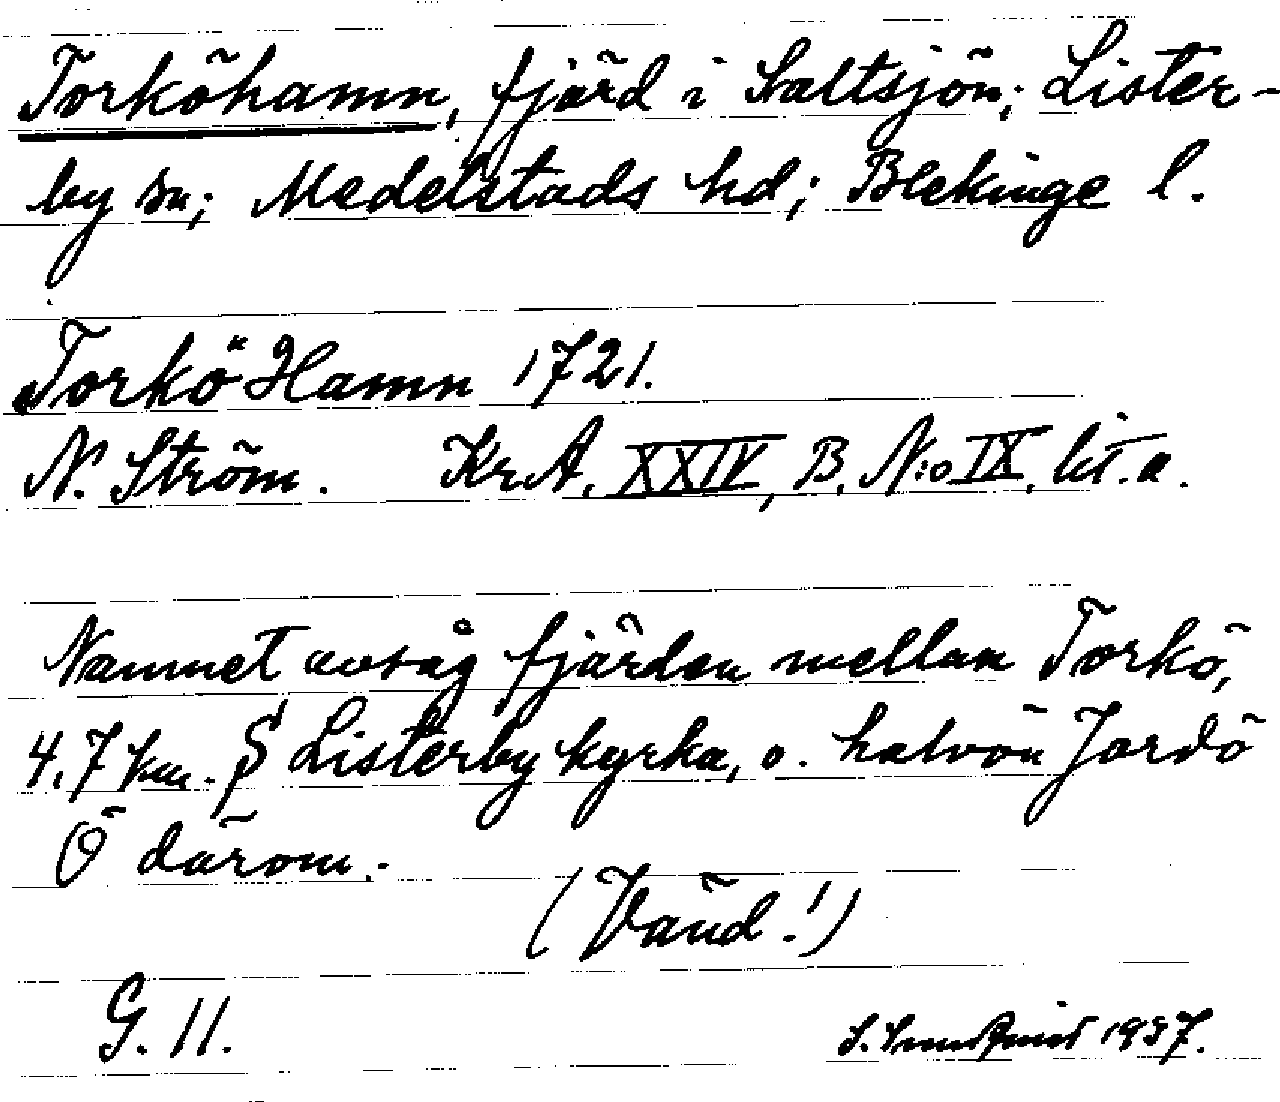 Torköhamn, fjärd i Saltsjön; Lister-
by sn; Medelstads hd; Blekinge l.
Torkö Hamn 1721.
N. Ström. KrA, XXIV, B, N:o IX, lit. a.
Namnet avsåg fjärden mellan Torkö,
4,7 km. S Listerby kyrka, o. halvön Jordö
Ö därom.
(Vänd!)
G. 11.
S. 1937.